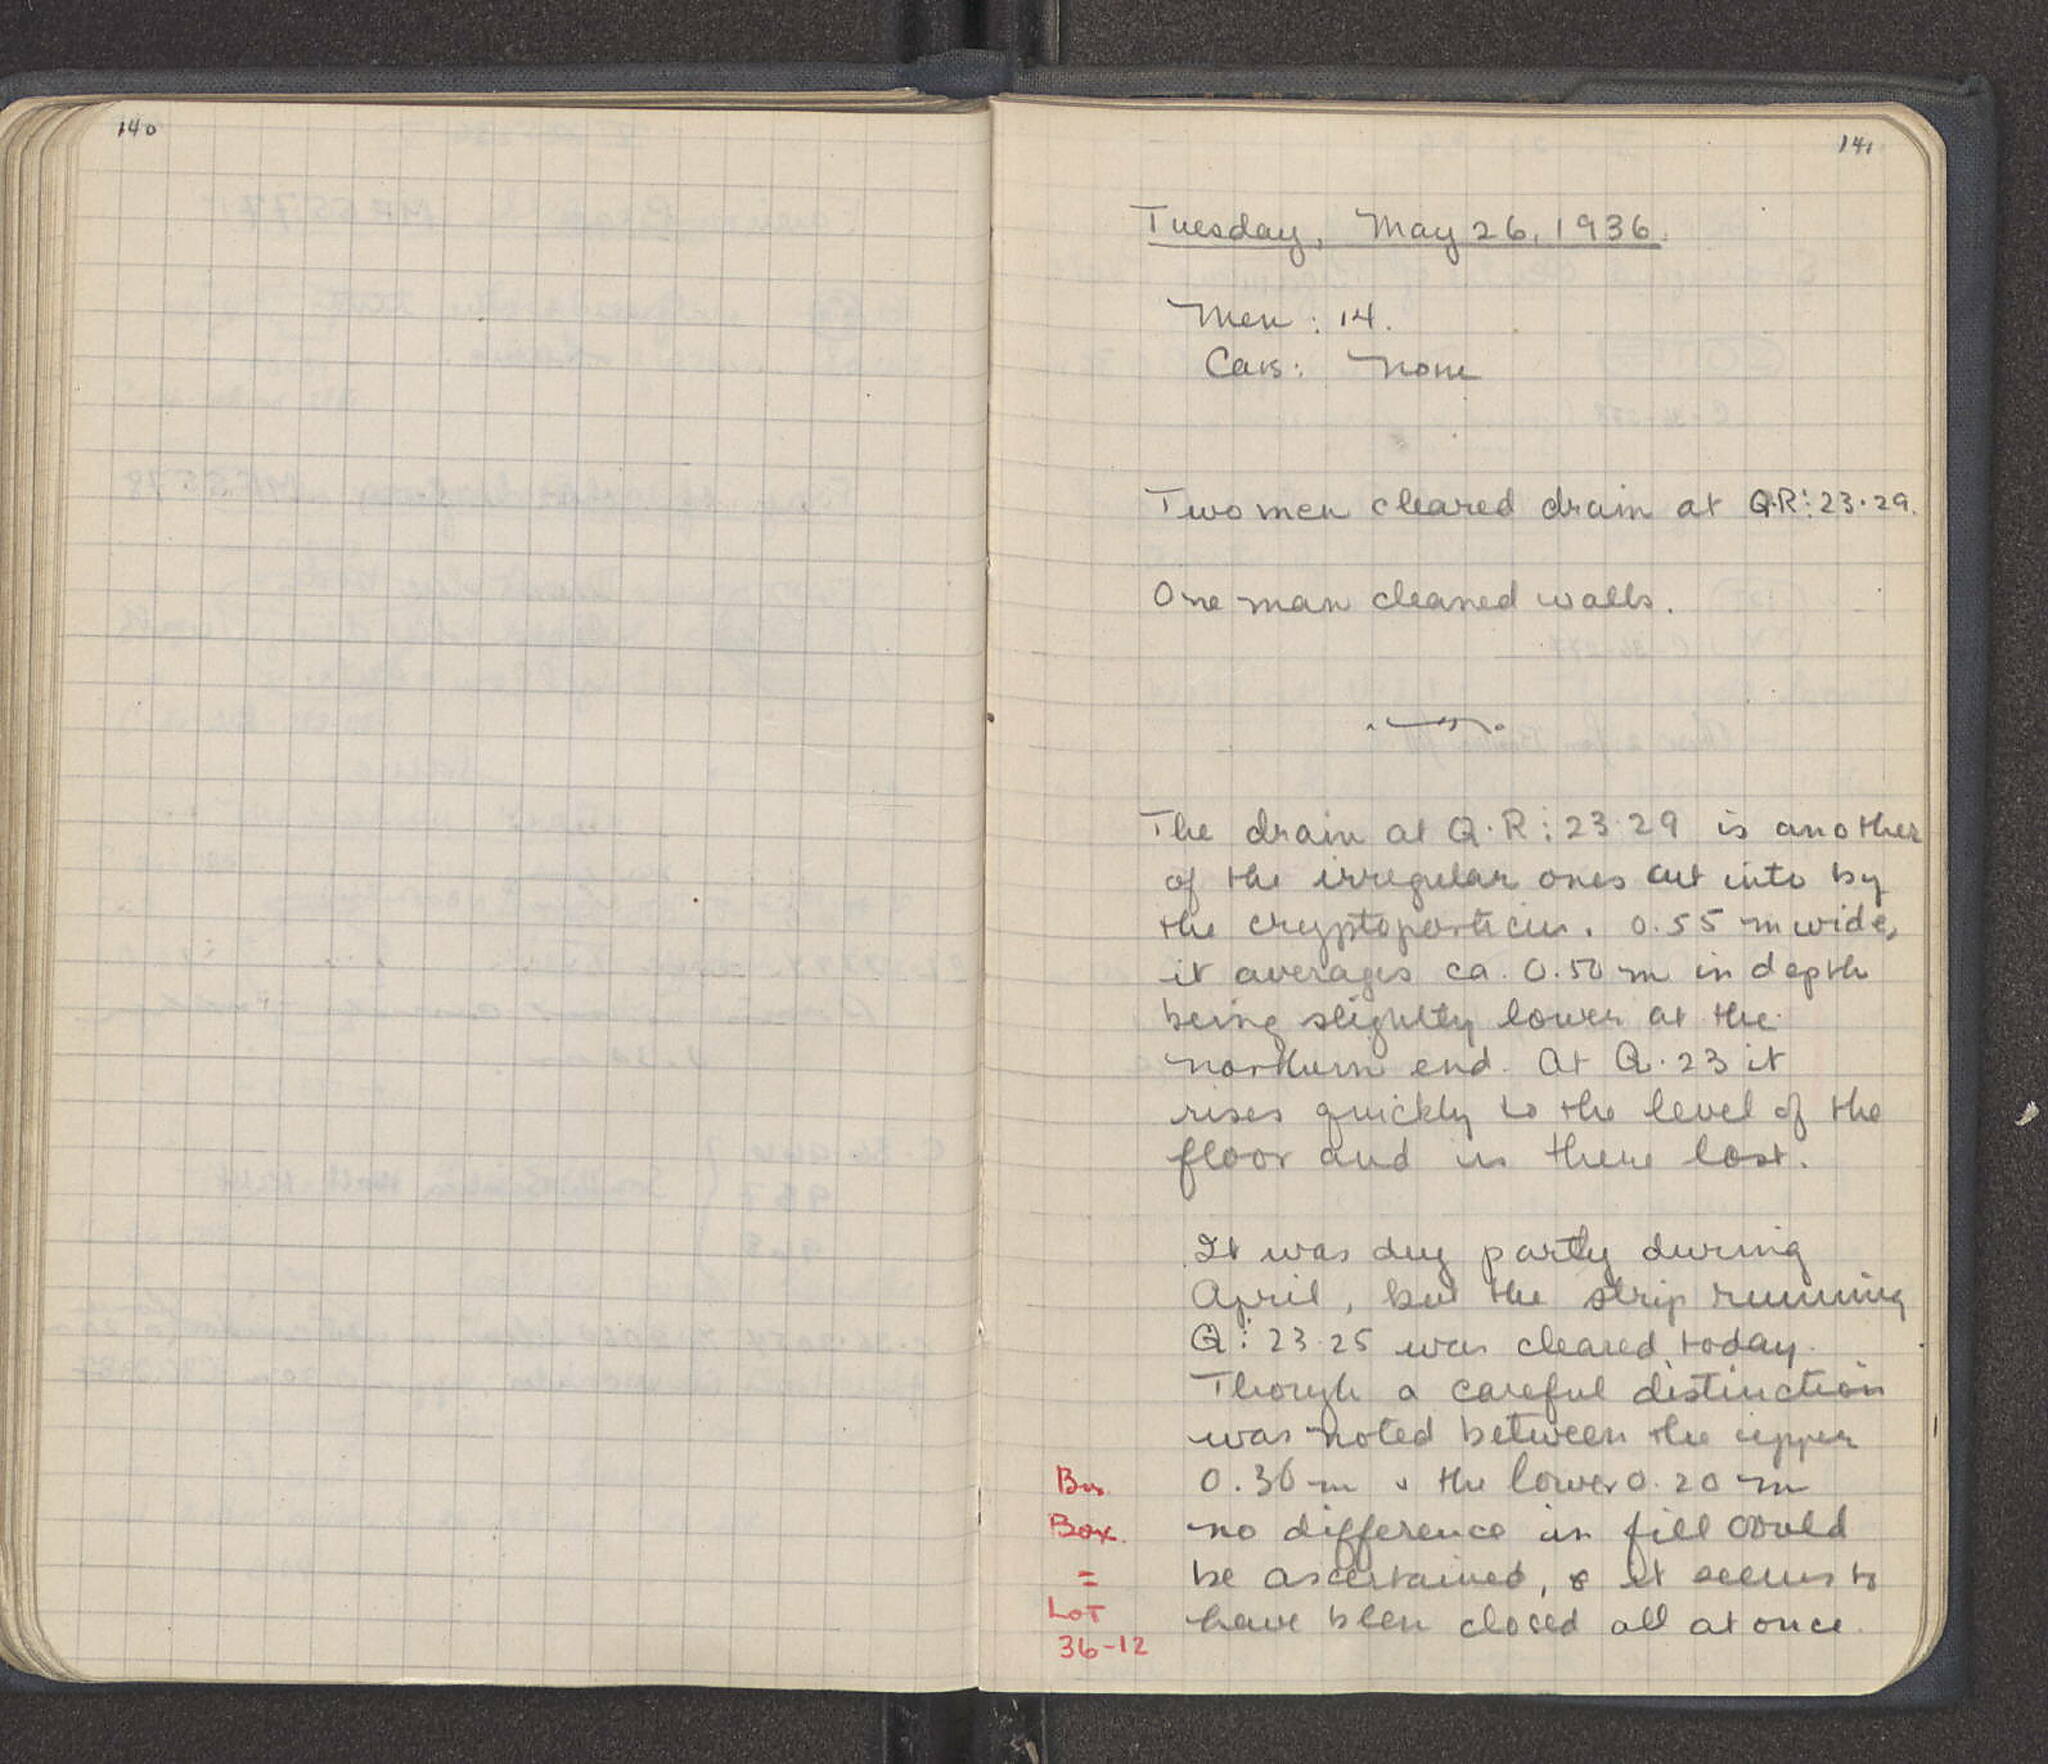 140
141
Tuesday, May 26, 1936.
Men : 14.
Cars : None
Two men cleared drain at Q·R:23·29.
One man cleaned walls.
The drain at Q·R:23·29 is another
of the irregular ones cut into by
the cryptoporticus. 0.55 m wide,
it averages ca. 0.50 m in depth
being slightly lower at the
northern end. At Q·23 it
rises quickly to the level of the
floor and is there lost.
It was dug partly during
April, but the strip running
Q:23·25 was cleared today.
Though a careful distinction
was noted between the upper
0.30 m & the lower 0.20 m
no difference in fill could
be ascertained, & it seems to
have been closed all at once.
Box
=
Lot
36-12